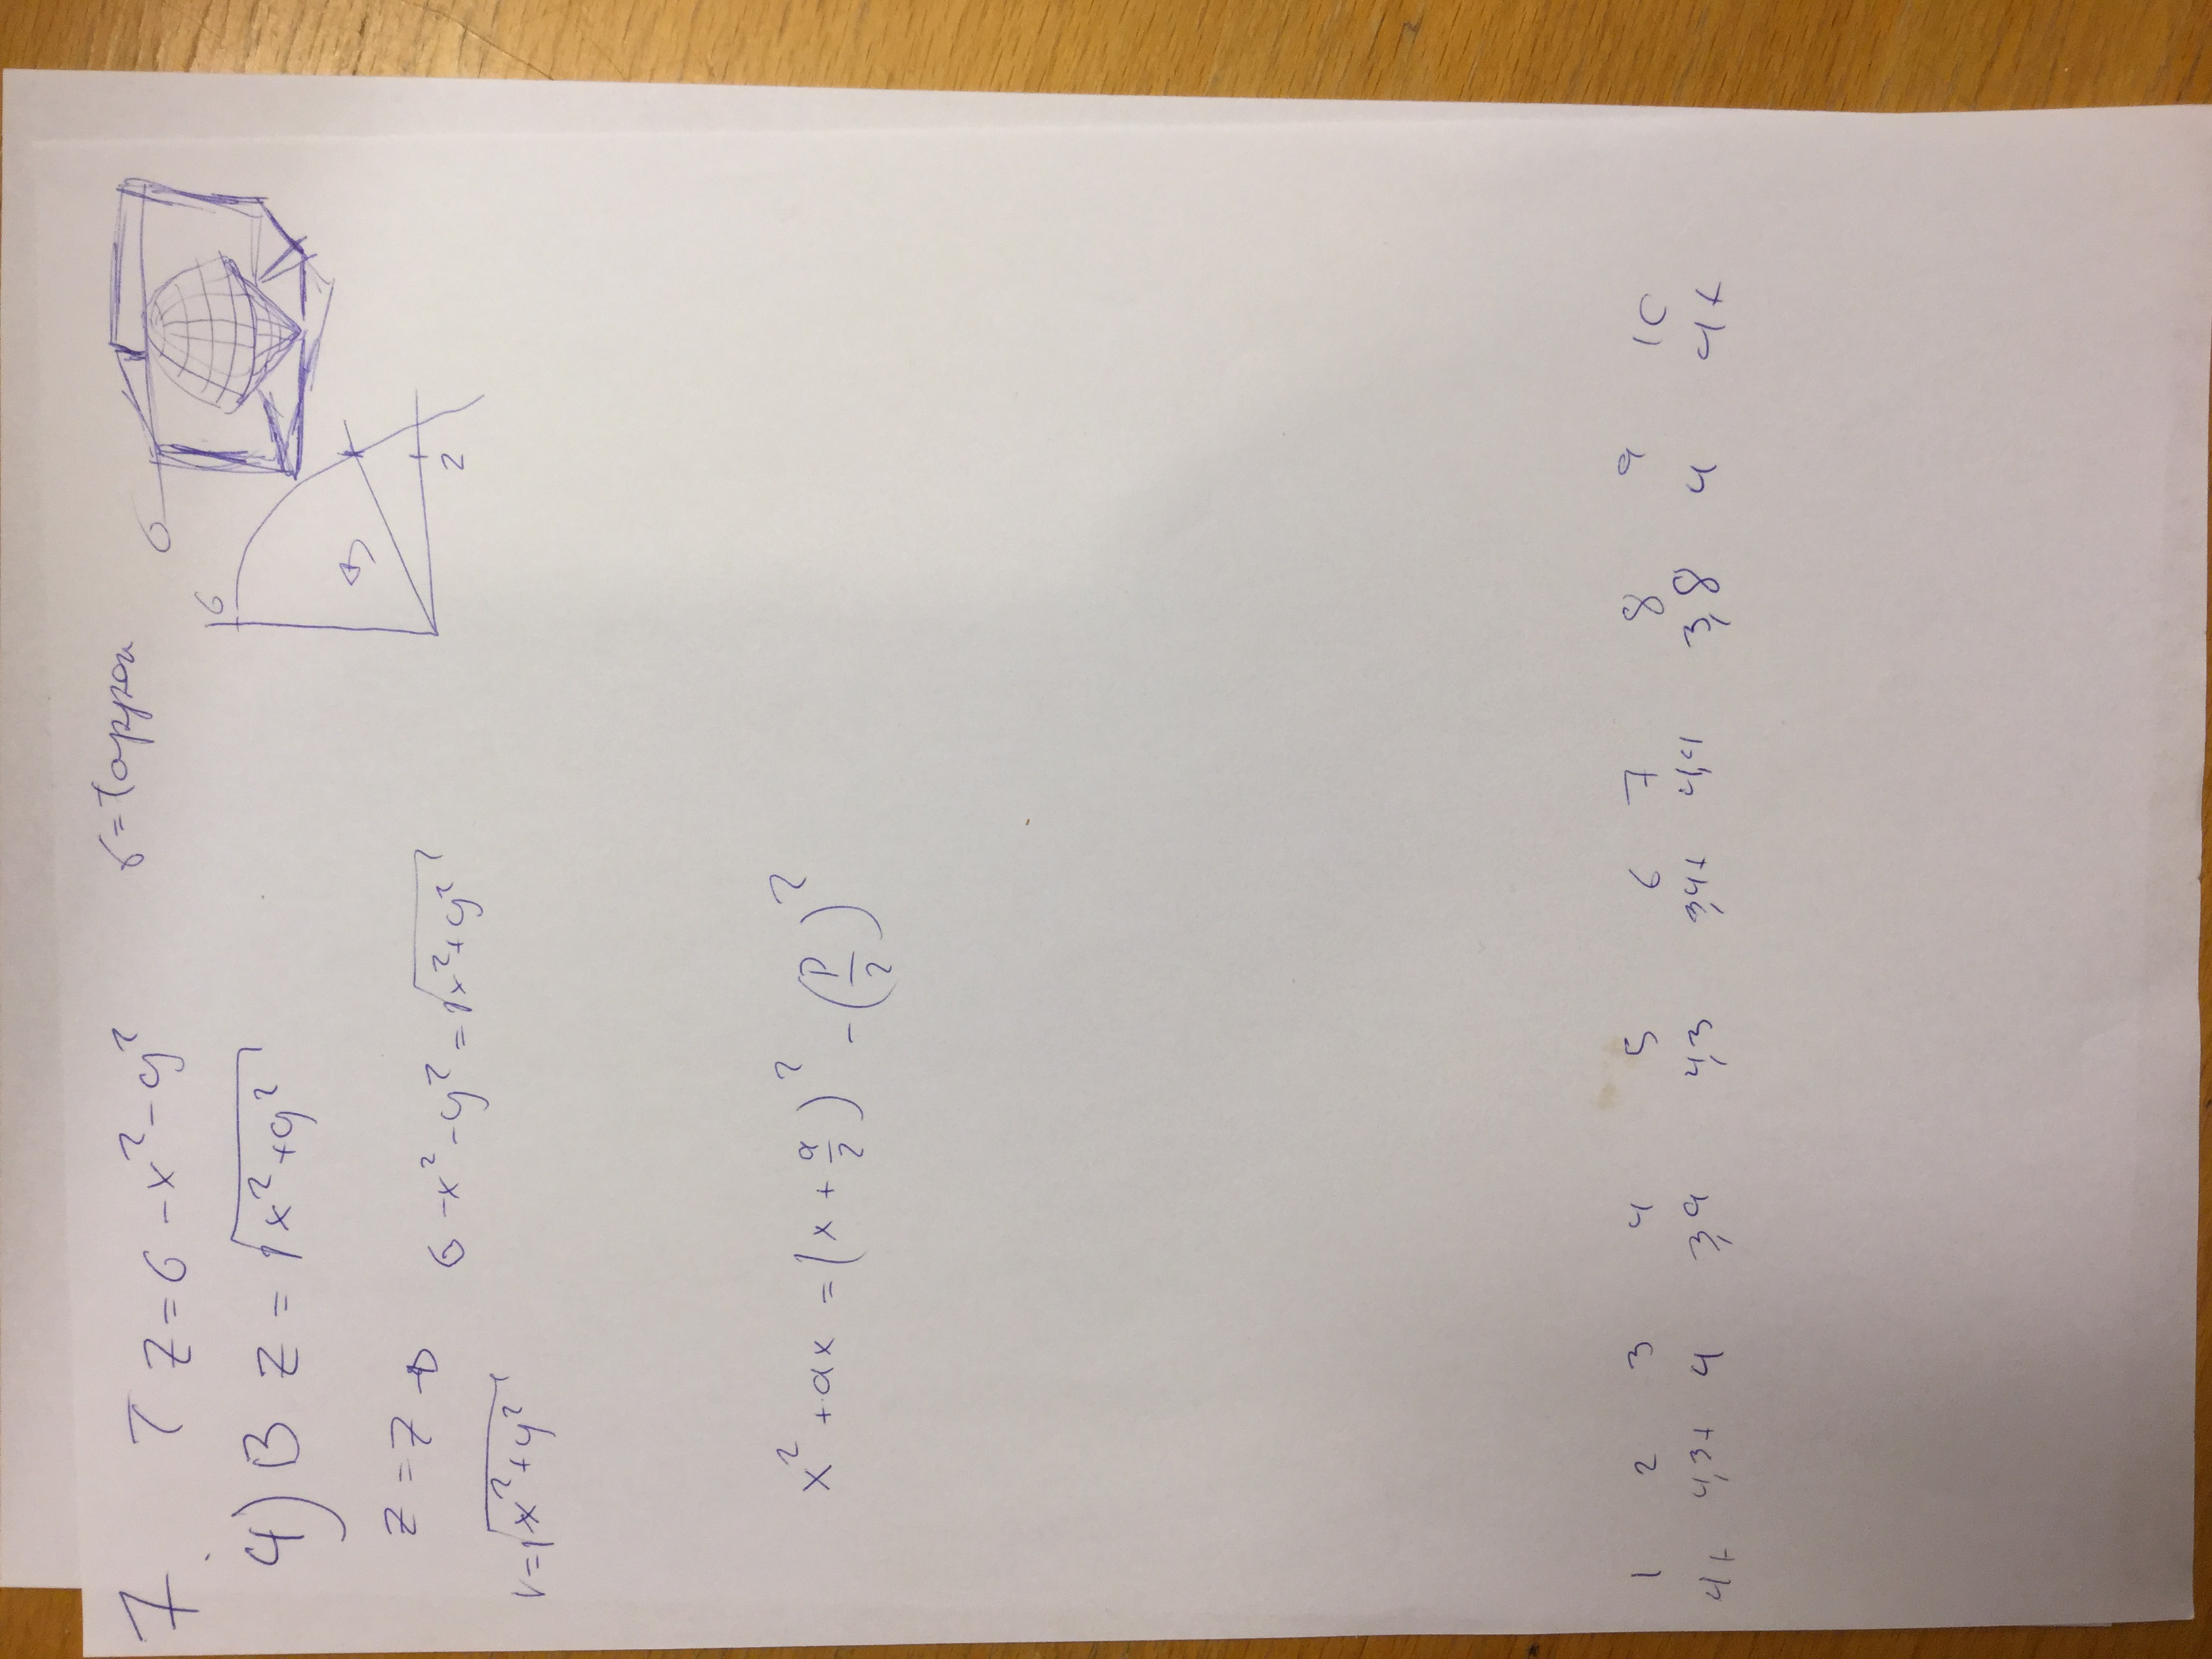 7. T z = 6 - x² - y²
6 = Toppen
6
4) B z = √(x² + y²)
6
z = z → 6 - x² - y² = √(x² + y²)
2
r = √(x² + y²)
x² + ax = (x + a/2)² - (p/2)²
1 2 3 4 5 6 7 8 9 10
4+ 4,3+ 4 3,9 4,3 3,4+ 4,4 3,8 4 4+